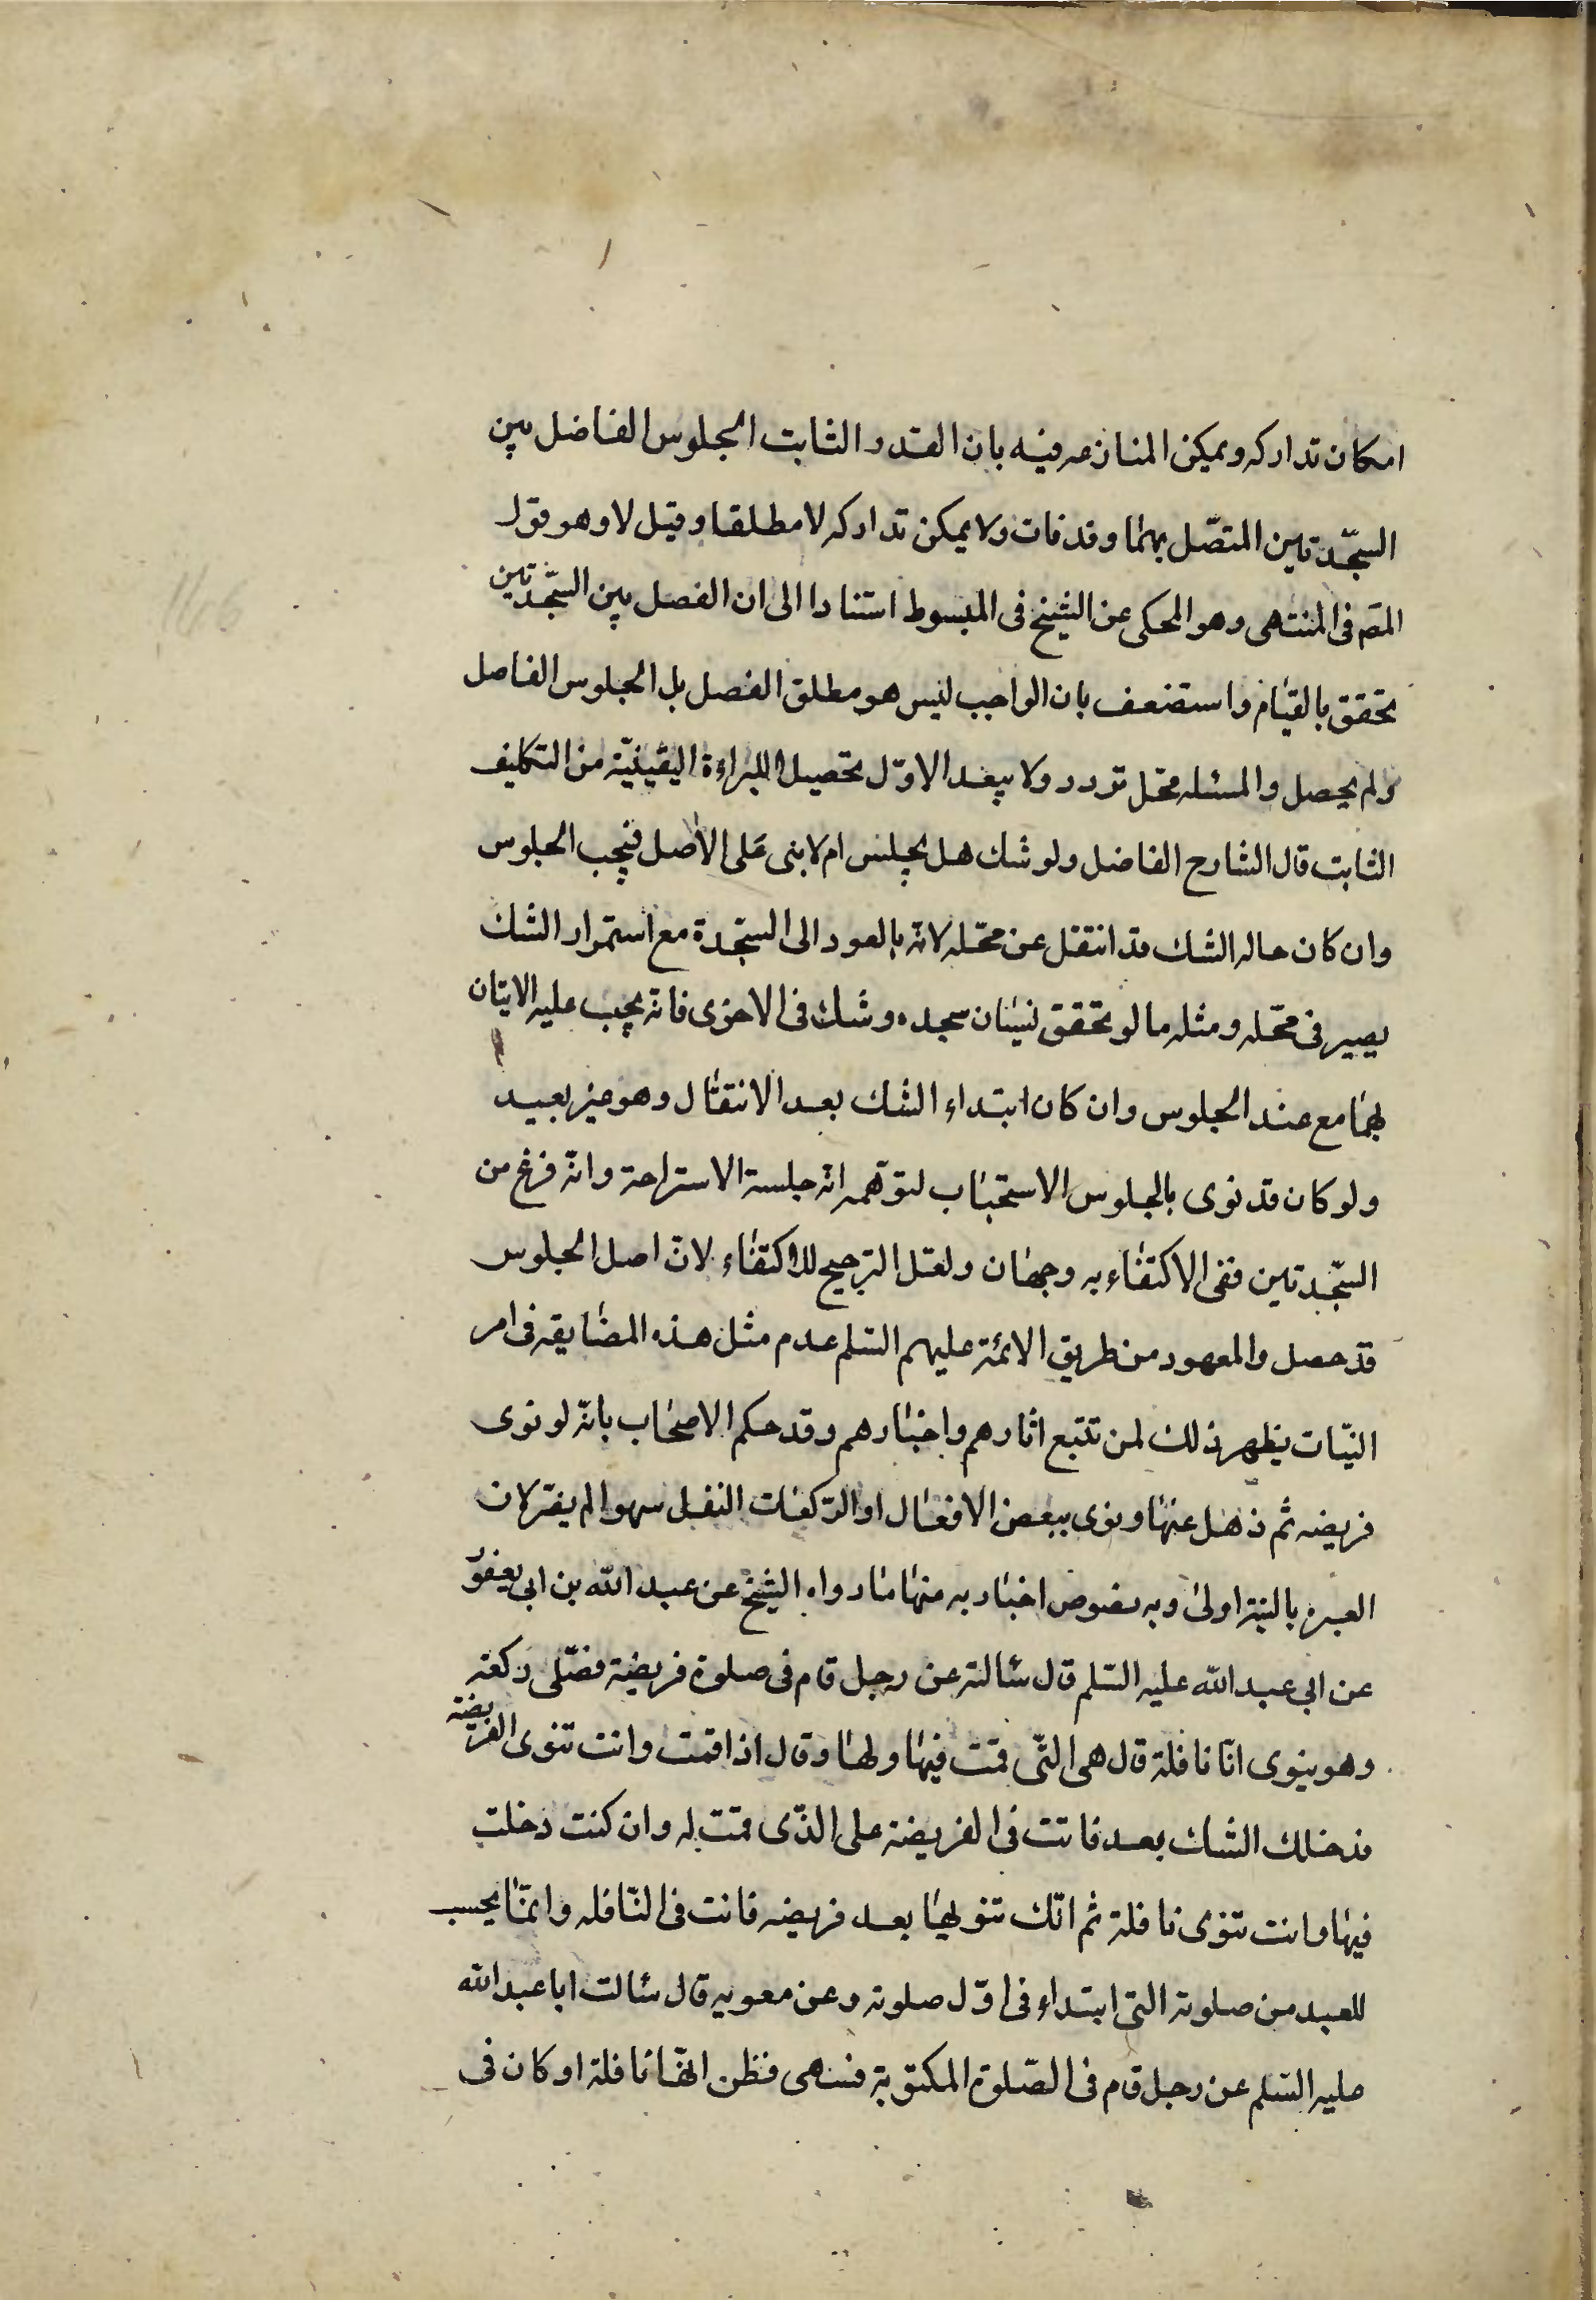 امكان تداركه ويمكن المنازعه فيه بان القدر الثابت الجلوس الفاضل بين
السجّدتين المتصّل بهما وقد فات ولا يمكن تداركه لا مطلقا وقيل لا وهو قول
المص فى المنتهى وهو المحكى عن الشيخ فى المبسوط استنادا الى ان الفصل بين السّجدتين
تحقق بالقيام واستضعف بان الواجب ليس هو مطلق الفصل بل الجلوس الفاصل
ولم يحصل والمسئله محّل تردد ولا يبعد الاوّل تحصيلا للبراءة اليقينيّة من التكليف
الثابت قال الشارح الفاضل ولو شك هل يجلس ام لا بنى على الأصل فيجب الجلوس
وان كان حاله الشك قد انتقل عن محّله لانّه بالعود الى السجّدة مع استمرار الشك
يصير فى محّله ومثله ما لو تحقق نسيان سجده وشك فى الاخرى فانّه يجب عليه الاتيان
بهما مع عند الجلوس وان كان ابتداء الشك بعد الانتقال وهو غير بعيد
ولو كان قد نوى بالجلوس الاستحباب لتوّهمه انّه جلسة الاستراحة وانّه فرغ من
السّجدتين ففى الاكتفاء به وجهان ولعّل الترجيح للاكتفاء لانّ اصل الجلوس
قد حصل والمعهود من طريق الائمّة عليهم السّلم عدم مثل هذه المضايقه فى امر
النيّات يظهر ذلك لمن تتبع اثارهم واخبارهم وقد حكم الاصحاب بانّه لو نوى
فريضه ثم ذهل عنها ونوى ببعض الافعال او الرّكعات النفل سهوا لم يضر لان
العبرة بالنية اولى وبه نصوص اخبار به منها ما رواه الشيخ عن عبد الله بن ابى يعفور
عن ابى عبد الله عليه السّلم قال سألته عن رجل قام فى صلوة فريضة فصّلى ركعة
وهو ينوى انّا نافلة قال هى الّتى قمت فيها ولها وقال اذا قمت وانت تنوى الفريضة
فدخلك الشك بعد فانت فى الفريضة على الذّى قمت له وان كنت دخلت
فيها وانت تنوى نافلة ثم انّك تنويها بعد فريضه فانت فى النّافله وانّما يحسب
للعبد من صلوته التى ابتداء فى اوّل صلوته وعن معويه قال سالت ابا عبد الله
عليه السّلم عن رجل قام فى الصّلوة المكتوبة فسهى فظن انّها نافلة او كان فى